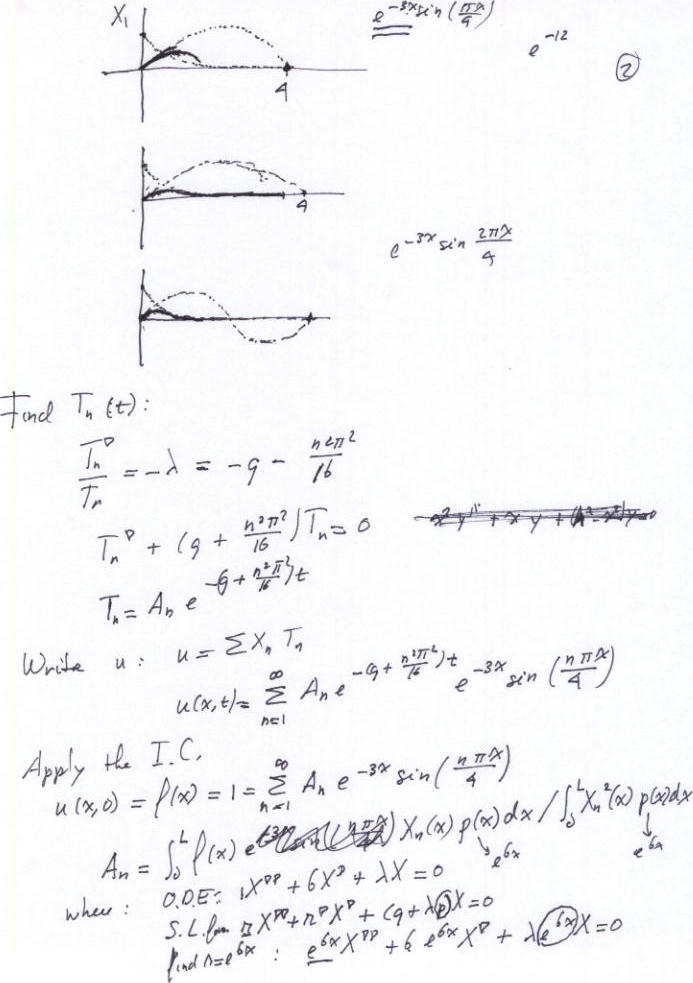 X₁
e^{-3x} sin(πx/4)
e^{-12}
②
4
4
e^{-3x} sin 2πx/4
Find Tₙ(t):
Tₙ'/Tₙ = -λ = -9 - n²π²/16
Tₙ' + (9 + n²π²/16)Tₙ = 0
Tₙ = Aₙ e^{-(9 + n²π²/16)t}
Write u: u = Σ Xₙ Tₙ
u(x,t) = Σ_{n=1}^{∞} Aₙ e^{-(9 + n²π²/16)t} e^{-3x} sin(nπx/4)
Apply the I.C.
u(x,0) = f(x) = 1 = Σ_{n=1}^{∞} Aₙ e^{-3x} sin(nπx/4)
Aₙ = ∫₀ᴸ f(x) Xₙ(x) p(x) dx / ∫₀ᴸ Xₙ²(x) p(x) dx
e^{6x} e^{6x}
where: O.D.E: 1X'' + 6X' + λX = 0
S.L. form r X'' + r' X' + (q + λp)X = 0
find r = e^{6x} : e^{6x} X'' + 6 e^{6x} X' + λ e^{6x} X = 0